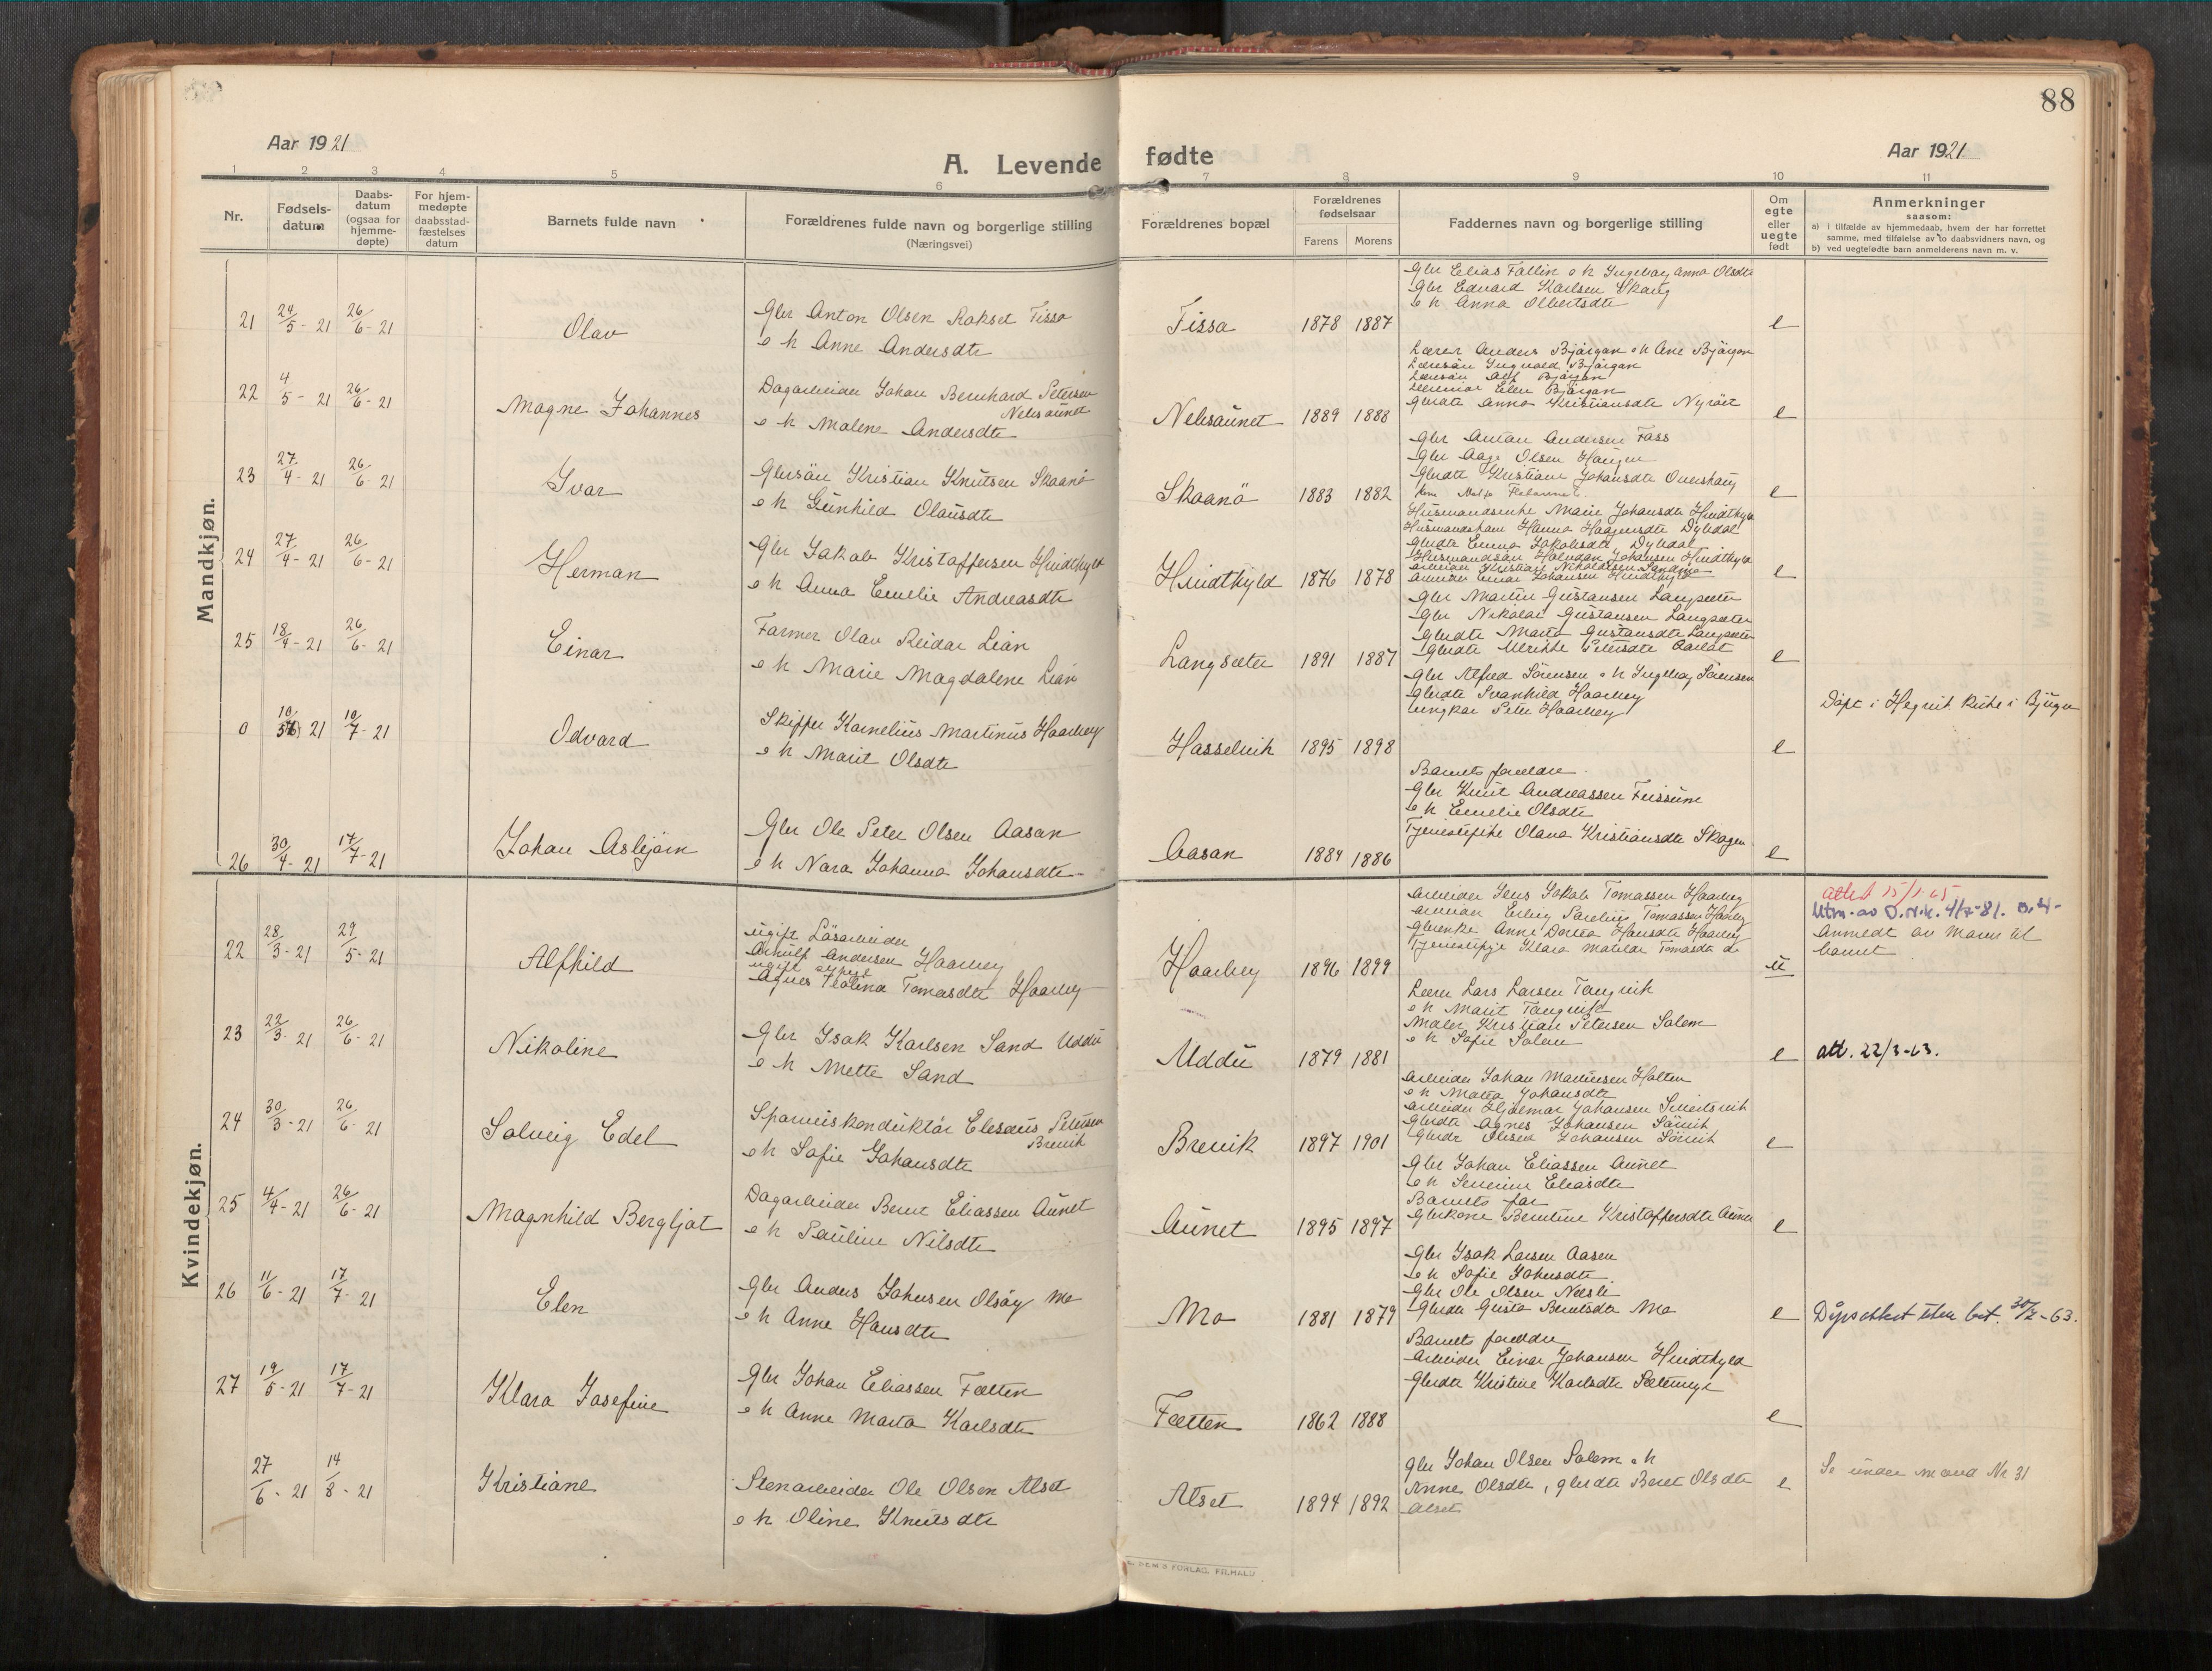 88
Aar 1921
A. Levende fødte
Aar 1921
1 2 3 4 5 6 7 8 9 10 11
Nr.
Fødsels-
datum
Daabs-
datum
(ogsaa for
hjemme-
døpte)
For hjem-
medøpte
daabsstad-
fæstelses
datum
Barnets fulde navn
Forældrenes fulde navn og borgerlige stilling
(Næringsvei)
Forældrenes bopæl
Forældrenes
fødselsaar
Farens Morens
Faddernes navn og borgerlige stilling
Om
egte
eller
uegte
født
Anmerkninger
saasom:
a) i tilfælde av hjemmedaab, hvem der har forrettet
samme, med tilføielse av to daabsvidners navn, og
b) ved uegtefødte barn anmelderens navn m. v.
Mandkjøn.
21 24/5 - 21 26/6 - 21 Olav
Gbr Anton Olsen Rokset Fissa
o h Anne Andersdtr
Fissa 1878 1887
Gbr Elias Fallin o h Ingeborg Anna Olsdtr
Gbr Edvard Karlsen Skaug
o h Anna Olbertsdtr
e
22 4/5 - 21 26/6 - 21 Magne Johannes
Dagarbeider Johan Bernhard Petersen
Nebsaunet
o h Malene Andersdtr
Nebsaunet 1889 1888
Lærer Anders Bjørgan o h Ane Bjørgan
Lærersøn Ingvald Bjørgan
Lærersøn Alf Bjørgan
Elen Bjørgan
Gbrdtr Anna Kristiansdtr
e
23 27/4 - 21 26/6 - 21 Ivar
Gbrsøn Kristian Knutsen Skaanø
o h Gunhild Olausdtr
Skaanø 1883 1882
Gbr Anton Andersen Fass
Gbr Aage Olsen Haugen
Gbrdtr Kristiane Johansdtr
e
24 27/4 - 21 26/6 - 21 Herman
Gbr Jakob Kristoffersen Hindthyld
o h Anna Emelie Andreasdtr
Hindthyld 1876 1878
Husmandsenke Marie Johansdtr Hindthyld
Husmandskone Hanna Haagensdtr Dybdal
Gbrdtr Emma Jakobsdtr Dybdal
Husmandsøn Halvdan Johansen Hindthyld
Arbeider Kristian Nikolaisen Sandmo
Arbeider Einar Johansen Hindthyld
e
25 18/4 - 21 26/6 - 21 Einar
Farmer Olav Reidar Lian
o h Marie Magdalene Lian
Langsæter 1891 1887
Gbr Martin Gustavsen Langsæter
Gbr Nikolai Gustavsen Langsæter
Gbrdtr Marta Gustavsdtr Langsæter
Gbrdtr Ulrikke Petersdtr
e
0 10/5 21 10/7 - 21 Odvard
Skipper Kornelius Martinus Haarberg
o h Marit Olsdtr
Hasselvik 1895 1898
Gbr Alfred Sørensen o h Ingeborg Sørensen
Gbrdtr Svanhild Haarberg
Ungkar Peter Haarberg
e
Døpt i Hegvik kirke i Bjugn
26 30/4 - 21 17/7 - 21 Johan Asbjørn
Gbr Ole Peter Olsen Aasan
o h Nara Johanna Johansdtr
Aasan 1884 1886
Barnets forældre
Gbr Knut Andreassen Fussum
o h Emelie Olsdtr
Tjenestepike Olava Kristiansdtr Skogen
e
Kvindekjøn.
22 28/3 - 21 29/5 - 21 Alfhild
ugift Løsarbeider
Arnulf Andersen Haarberg
ugift
Agnes Teolina Tomasdtr Haarberg
Haarberg 1896 1899
Arbeider Jens Jakob Tomassen Haarberg
Arbeider Erling Tomassen Haarberg
Gbrenke Anne Dorea Hansdtr Haarberg
Tjenestepige Klara Matilde Tomasdtr do
u
attest 15/1-65
Utm. av D.N.k. 4/7-81.
Anmeldt av Moren til
barnet
23 22/3 - 21 26/6 - 21 Nikoline
Gbr Isak Karlsen Sand Uddu
o h Mette Sand
Uddu 1879 1881
Lærer Lars Larsen Tangvik
o h Marit Tangvik
Maler Kristian Petersen Solem
o h Sofie Solem
e
att. 22/3-63.
24 30/3 - 21 26/6 - 21 Solveig Edel
Sporveiskonduktør Eleseus Petersen
Brevik
o h Sofie Johansdtr
Brevik 1897 1901
Arbeider Johan Martinsen Holten
o h Marta Johansdtr
Arbeider Hjalmar Johansen
Gbrdtr Agnes Johansen Sørvik
Johansen Sørvik
e
25 4/4 - 21 26/6 - 21 Magnhild Bergljot
Dagarbeider Bernt Eliassen Aunet
o h Pauline Nilsdtr
Aunet 1895 1897
Gbr Johan Eliassen Aunet
o h Severine Eliasdtr
Barnets far
Gbrkone Berntine Kristoffersdtr Aunet
e
26 11/6 - 21 17/7 - 21 Elen
Gbr Anders Johnsen Olsøy Mo
o h Anne Hansdtr
Mo 1881 1879
Gbr Isak Larsen Aasen
o h Sofie Johnsdtr
Gbr Ole Olsen Næsli
Gbrdtr Gusta Berntsdtr Mo
e
Dåpsattest uten bet. 30/7-63.
27 19/5 - 21 17/7 - 21 Klara Josefine
Gbr Johan Eliassen Fætten
o h Anne Marta Karlsdtr
Fætten 1862 1888
Barnets forældre
Arbeider Einar Johansen Hindthyld
Gbrdtr Kristine Karlsdtr Sætermyr
e
27/6 - 21 14/8 - 21 Kristiane
Stenarbeider Ole Olsen Alset
o h Oline Knutsdtr
Alset 1894 1892
Gbr Johan Olsen Solem o h
Anne Olsdtr, gbrdtr Beret Olsdtr
Alset
e
Se under mand Nr 31